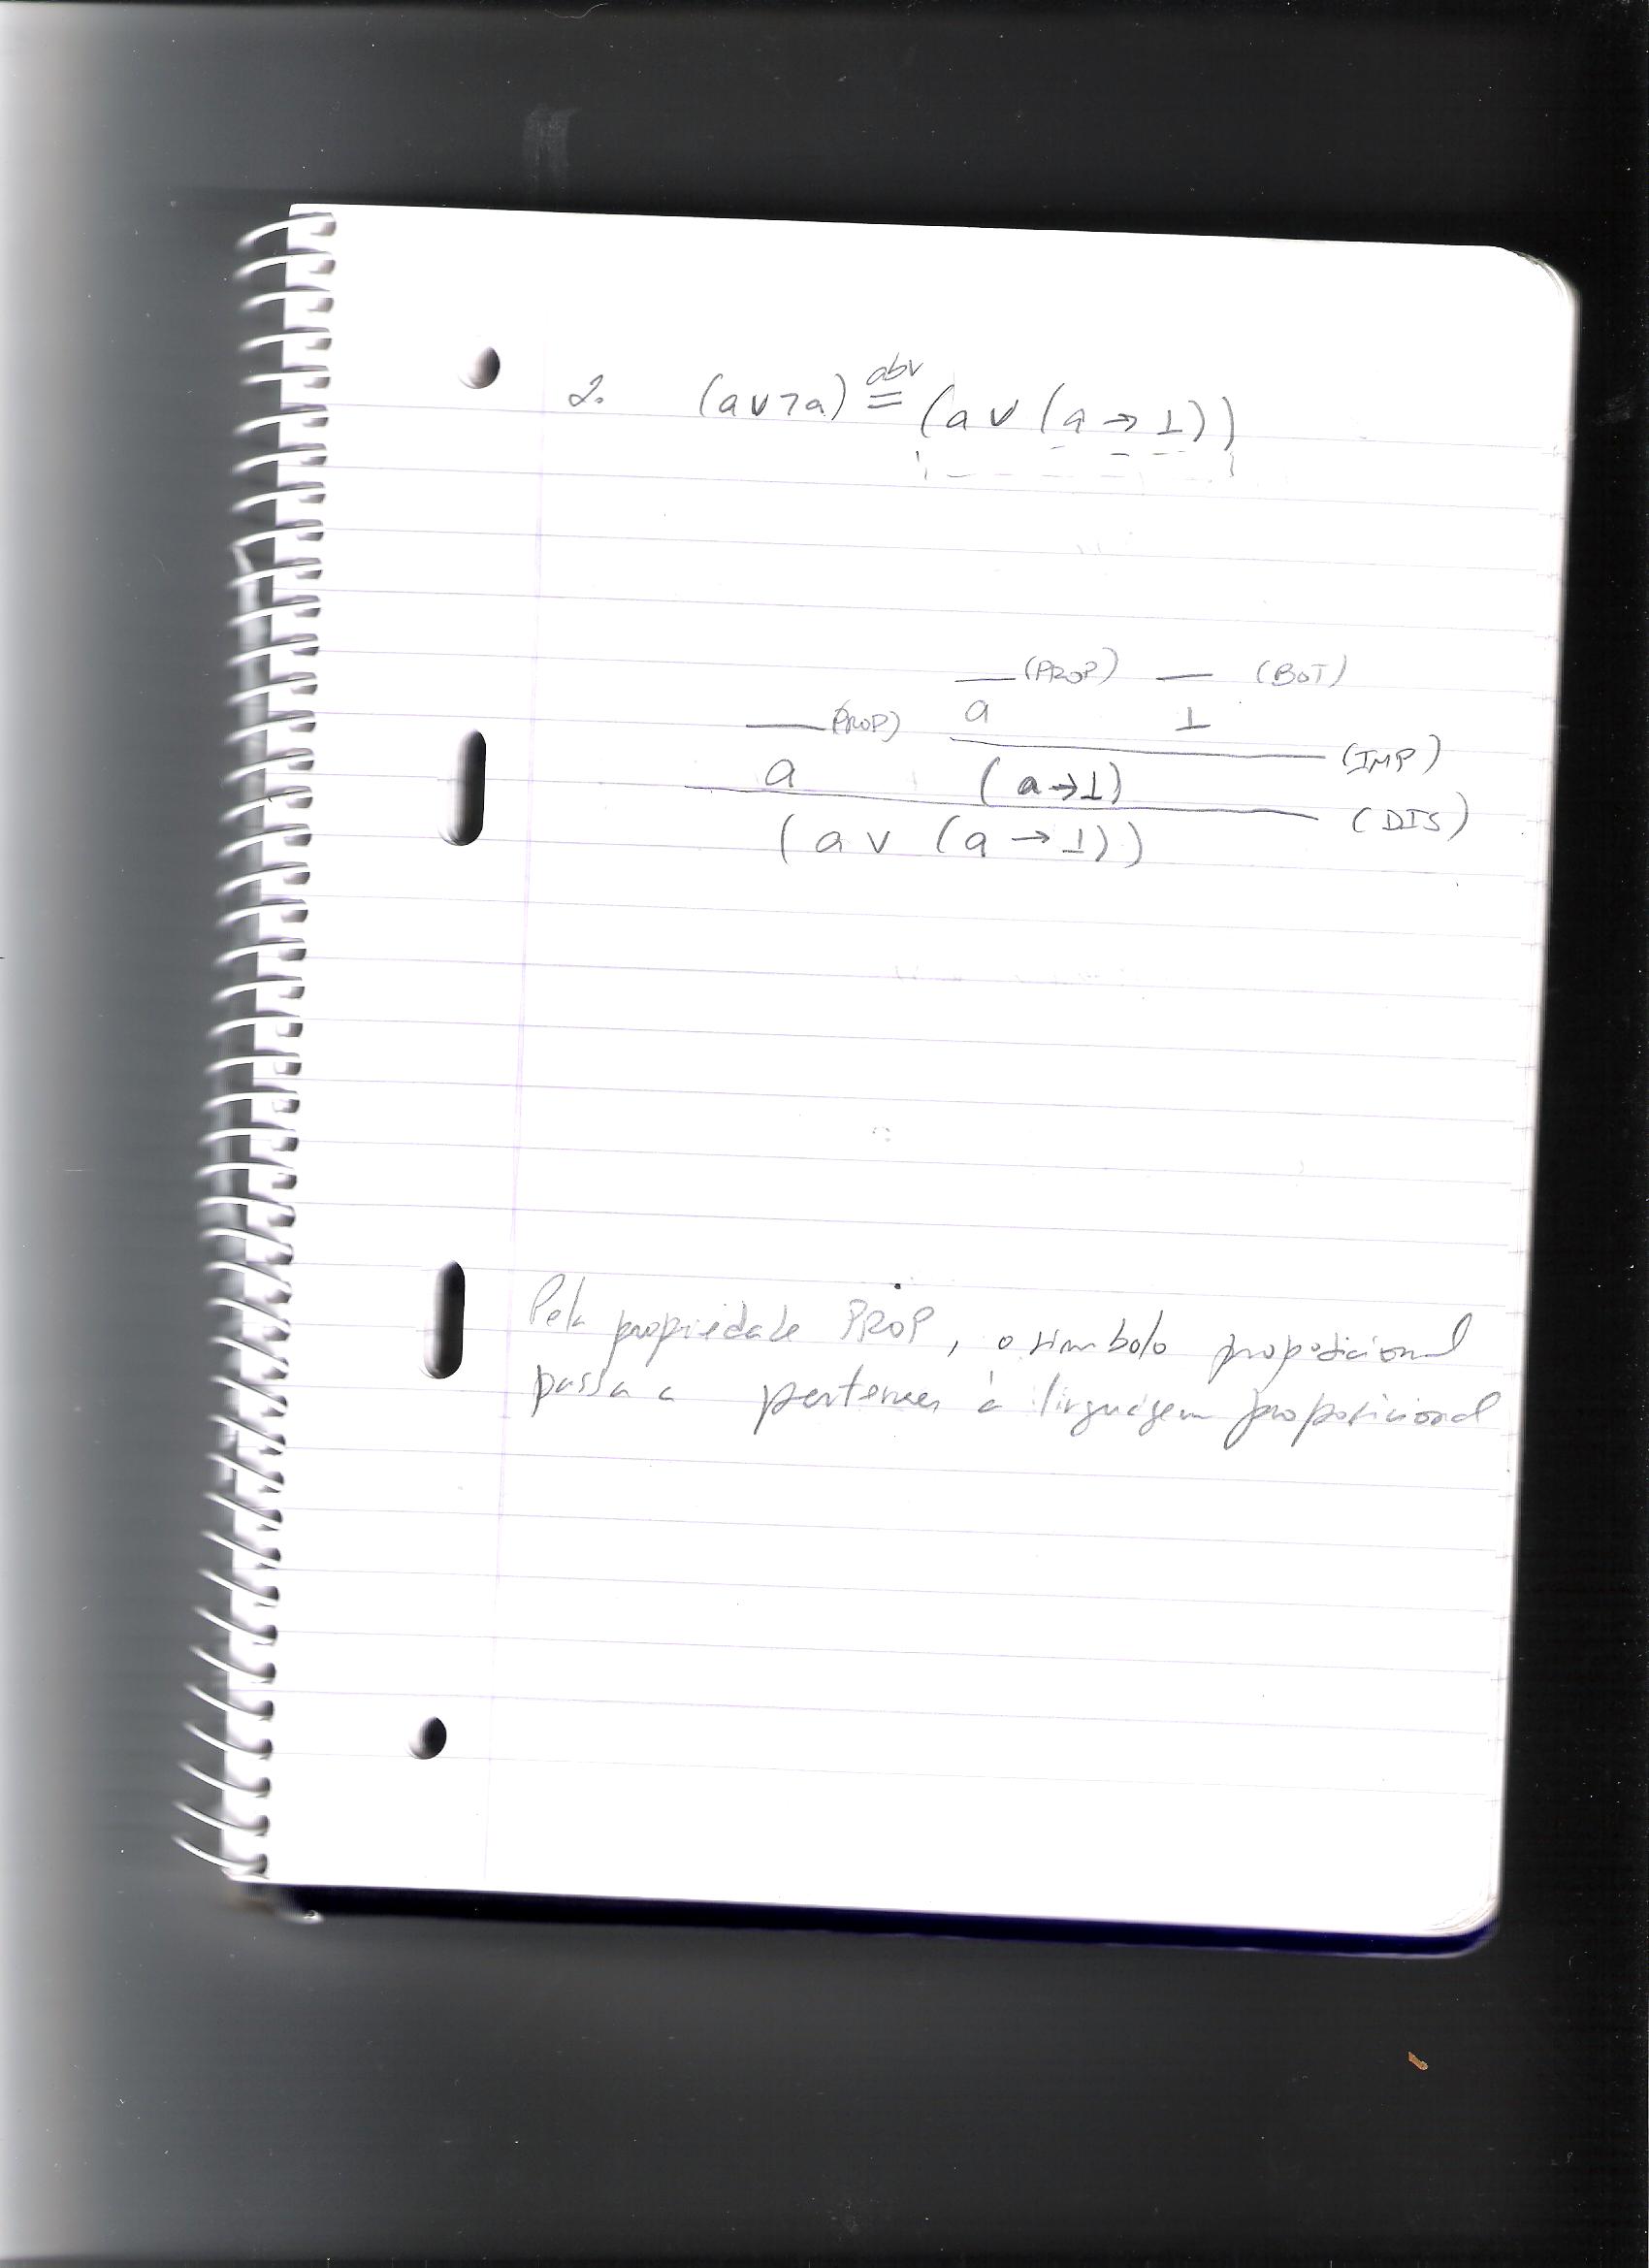 2. (a∨¬a) abv= (a ∨ (a → ⊥))
(PROP) (BOT)
(PROP) a ⊥
(IMP)
a (a→⊥)
(DIS)
(a ∨ (a → ⊥))
Pela propriedade PROP, o simbolo proposicional
passa a pertencer à linguagem proposicional